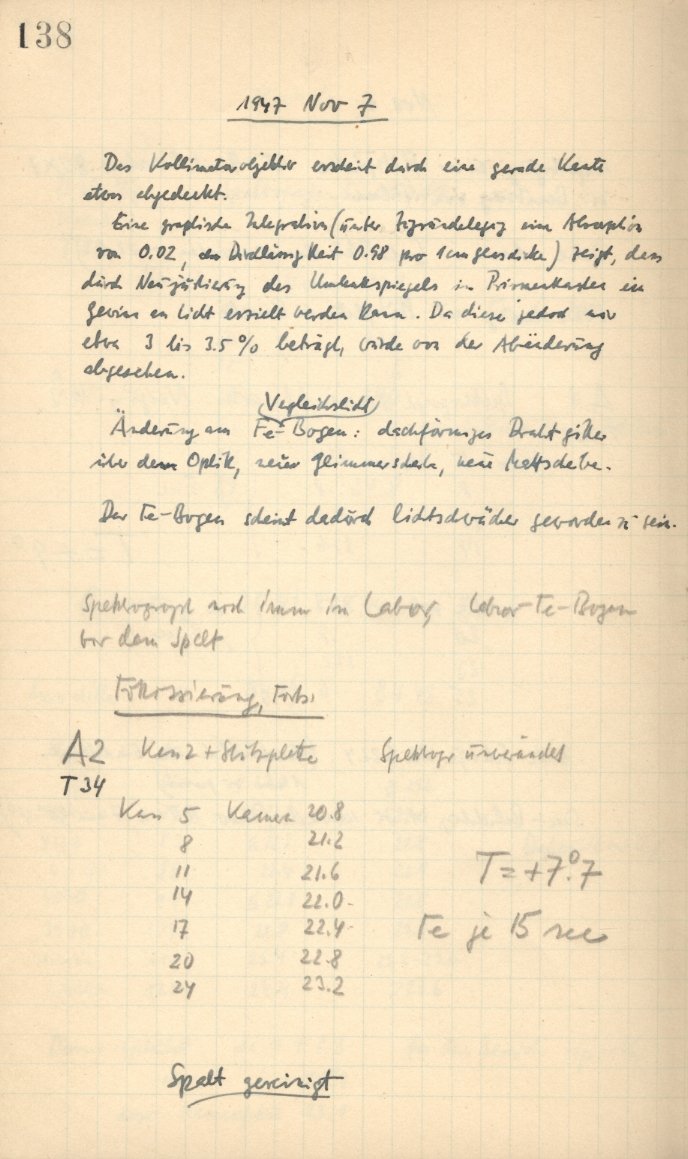 138
1947 Nov 7
Das Kollimatorobjektiv erscheint durch eine gerade Kante
etwas abgedeckt.
Eine graphische Integration (unter Zugrundelegung eine Absorption
von 0.02, Durchlässigkeit 0.98 pro 1cm glasdicke) zeigt, dass
durch Neujustierung des Umlenkspiegels in Prismenkasten ein
Gewinn an Licht erzielt werden kann. Da dieser jedoch nur
etwa 3 bis 3.5% beträgt, wurde von der Abänderung
abgesehen.
Vergleichslicht
Änderung am Fe-Bogen: dachförmiges Drahtgitter
über dem Optik, neue Glimmerscheibe, neue Mattscheibe.
Der Fe-Bogen scheint dadurch lichtschwächer geworden zu sein.
Spektrograph noch immer im Labor, Labor-Fe-Bogen
vor dem Spalt
Fokussierung, Forts.
A2 + Stützplatte Spektrogr unverändert
T34
5 Kamera 20.8
8 21.2
11 21.6
14 22.0
17 22.4
20 22.8
24 23.2
T = +7°.7
Fe je 15 sec
Spalt gereinigt